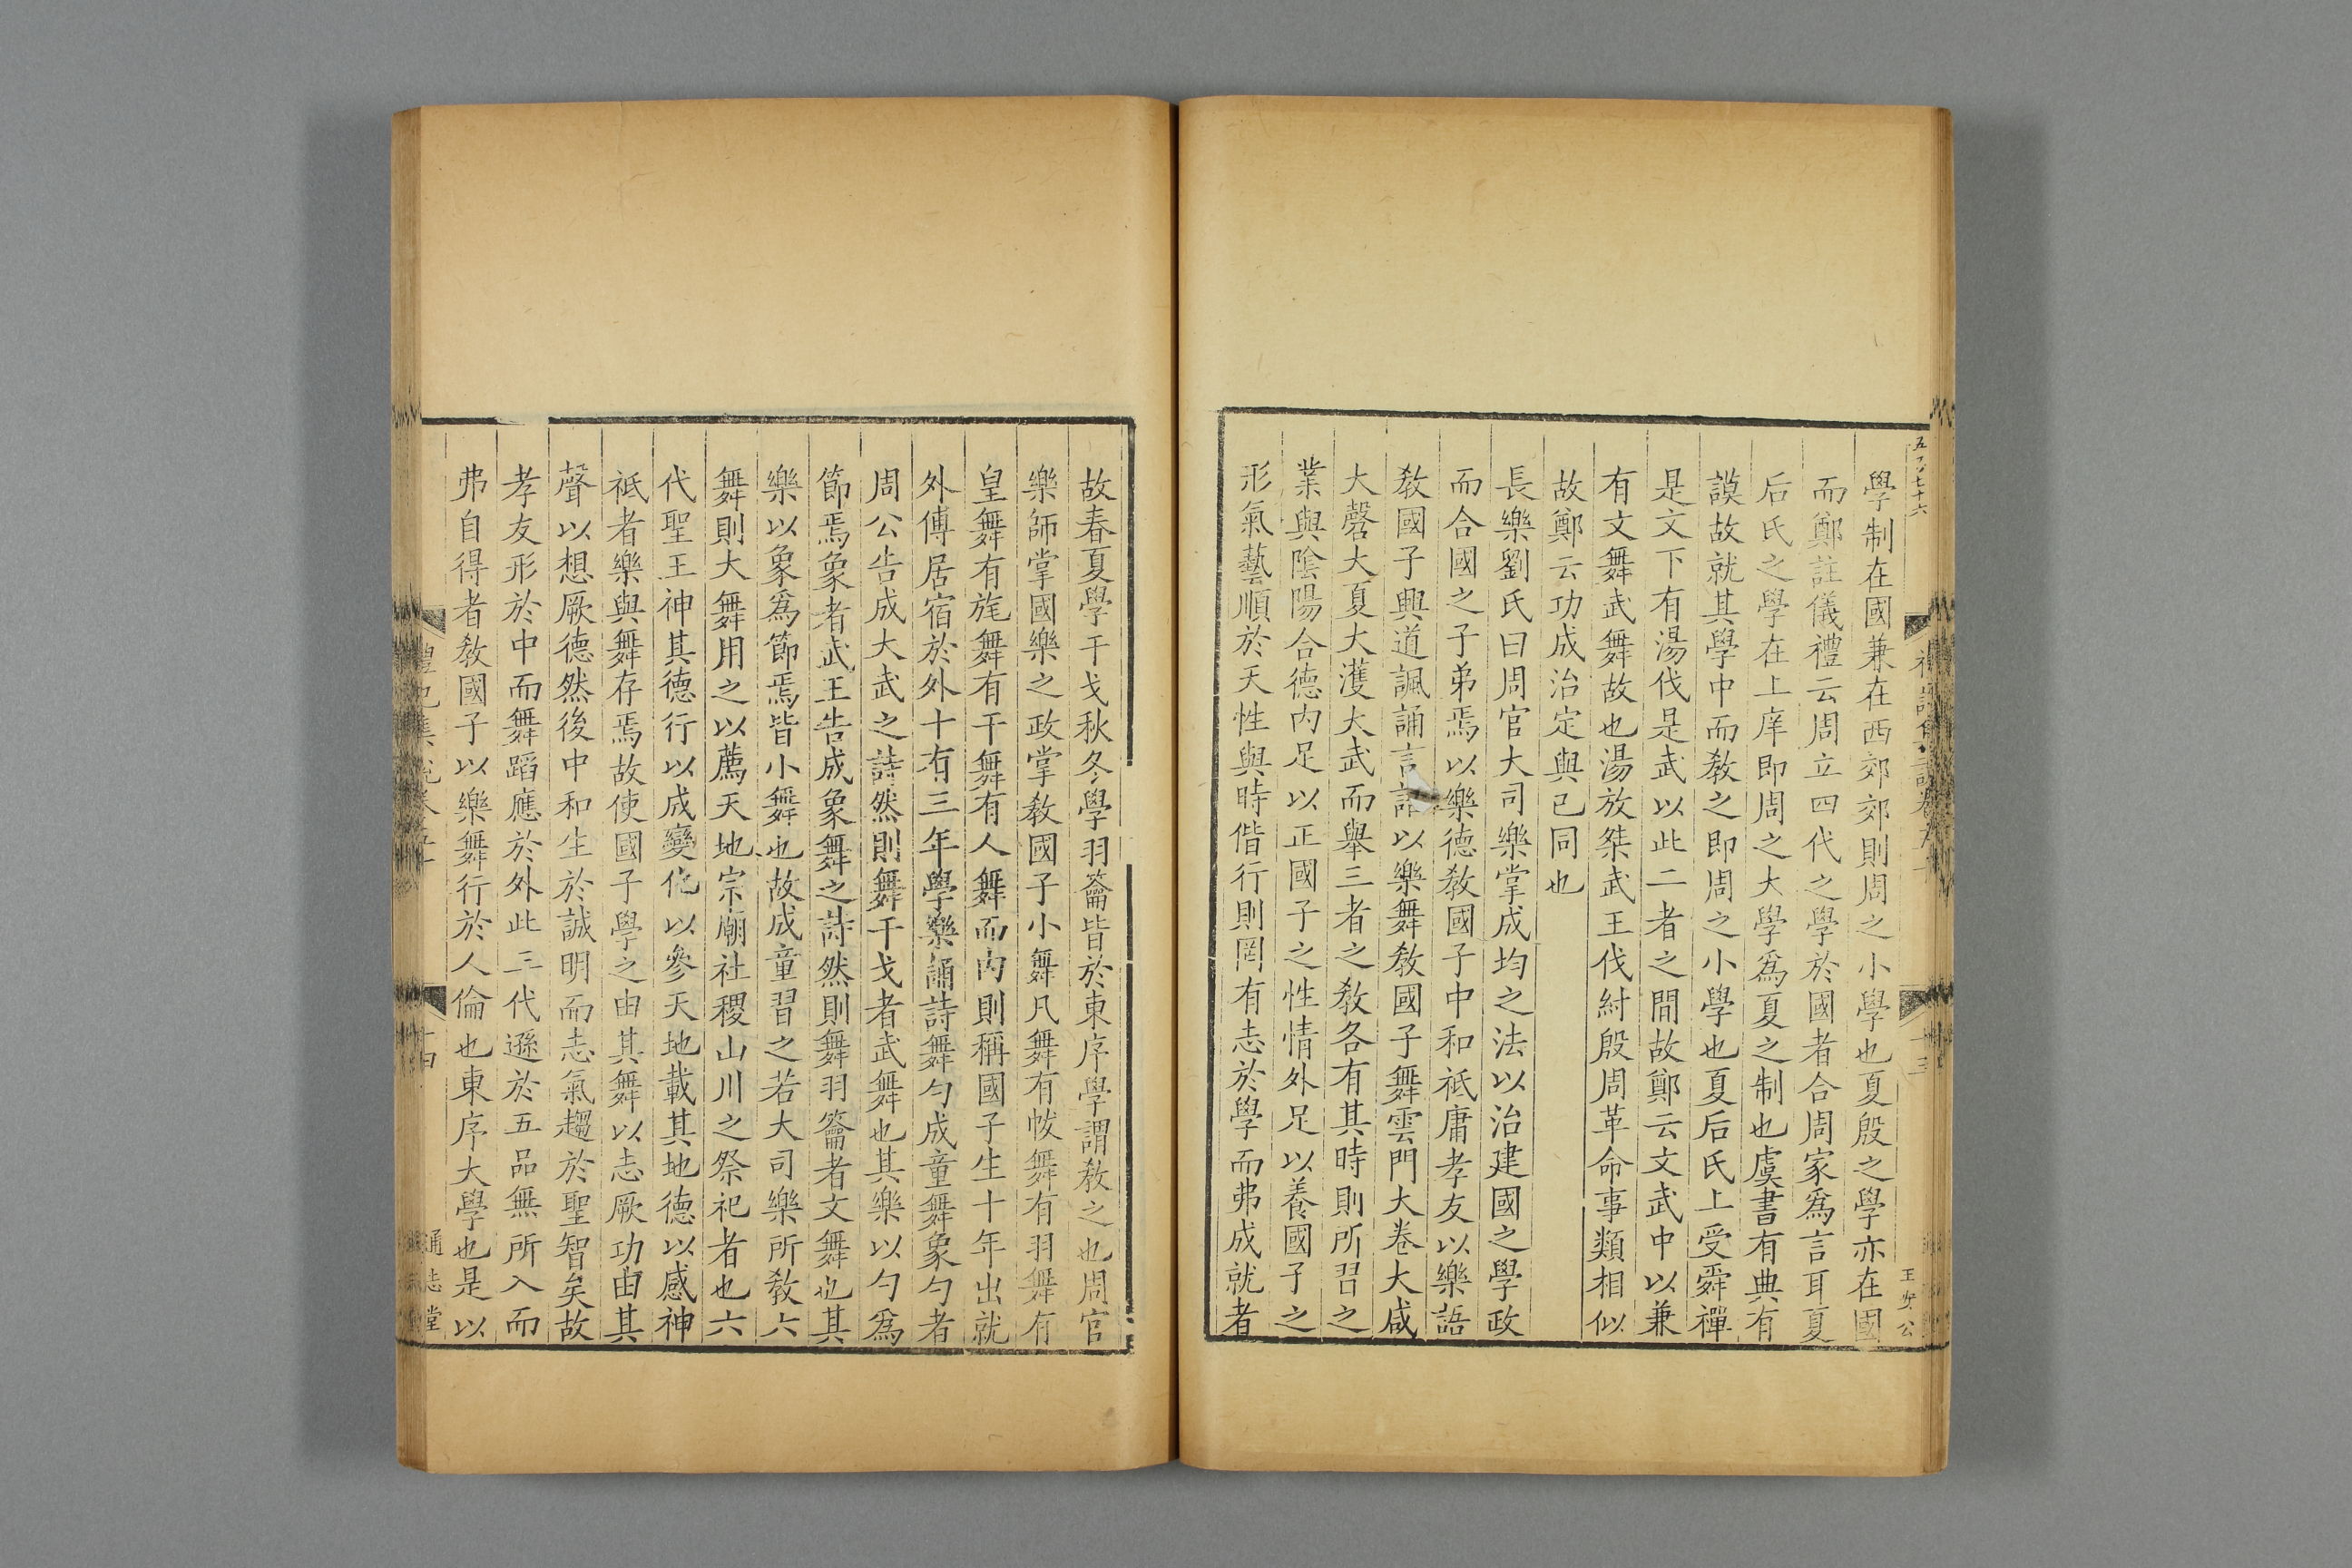 學制在國兼在西郊郊則周之小學也夏殷之學亦在國
而鄭註儀禮云周立四代之學於國者合周家爲言耳夏
后氏之學在上庠即周之大學爲夏之制也虞書有典有
謨故就其學中而敎之即周之小學也夏后氏上受舜禪
是文下有湯伐是武以此二者之間故鄭云文武中以兼
有文舞武舞故也湯放桀武王伐紂殷周革命事類相似
故鄭云功成治定與已同也
長樂劉氏曰周官大司樂掌成均之法以治建國之學政
而合國之子弟焉以樂德敎國子中和祗庸孝友以樂語
敎國子興道諷誦言語以樂舞敎國子舞雲門大卷大咸
大磬大夏大濩大武而舉三者之敎各有其時則所習之
業與陰陽合德內足以正國子之性情外足以養國子之
形氣藝順於天性與時偕行則罔有志於學而弗成就者
王公
故春夏學干戈秋冬學羽籥皆於東序學謂敎之也周官
樂師掌國樂之政掌敎國子小舞凡舞有帗舞有羽舞有
皇舞有旄舞有干舞有人舞而內則稱國子生十年出就
外傅居宿於外十有三年學樂誦詩舞勺成童舞象勺者
周公告成大武之詩然則舞干戈者武舞也其樂以勺爲
節焉象者武王告成象舞之詩然則舞羽籥者文舞也其
樂以象爲節焉皆小舞也故成童習之若大司樂所敎六
舞則大舞用之以薦天地宗廟社稷山川之祭祀者也六
代聖王神其德行以成變化以參天地載其地德以感神
祗者樂與舞存焉故使國子學之由其舞以志厥功由其
聲以想厥德然後中和生於誠明而志氣趨於聖智矣故
孝友形於中而舞蹈應於外此三代遜於五品無所入而
弗自得者敎國子以樂舞行於人倫也東序大學也是以
十四
通志堂